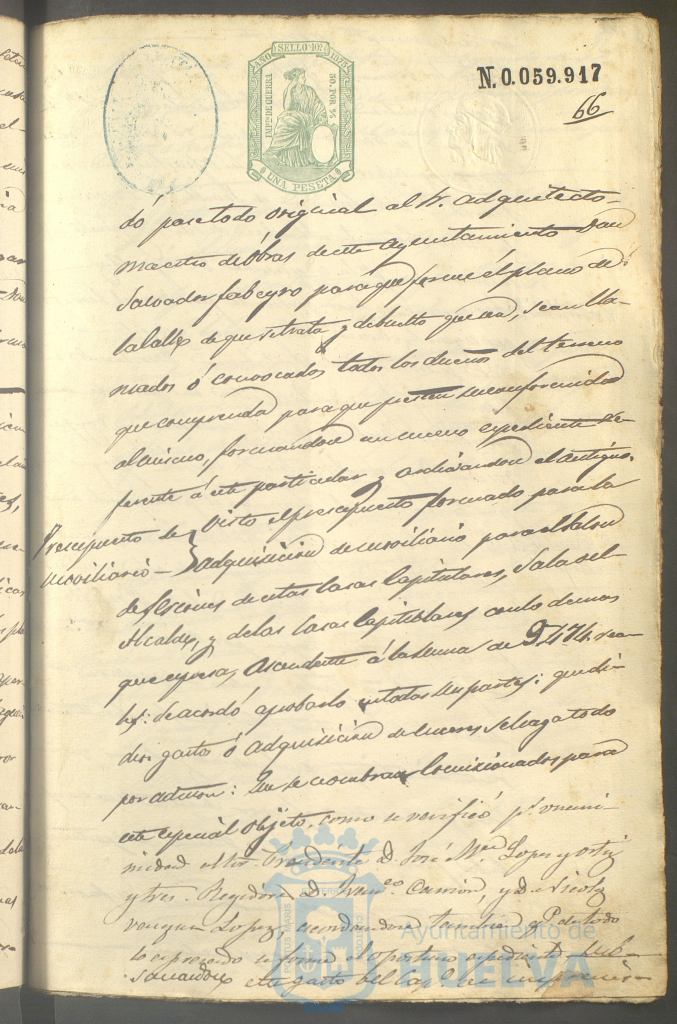 AÑO SELLO 10º 1875
IMPTO DE GUERRA
50 POR %
UNA PESETA
N. 0.059.917
66
do pase todo original al Sr. Arquitecto
maestro de Obras de este Ayuntamiento Don
Salvador para que forme el plano de
la calle de que se trata y devuelto que sea, sean lla-
mados ó convocados todos los dueños del terreno
que comprenda para que presten su conformidad
al mismo, formandose un nuevo expediente re-
ferente á este particular y archivandose el antiguo.
Presupuesto de
moviliario
Visto el presupuesto formado para la
adquisicion de moviliario para el Salon
de Sesiones de estas Casas Capitulares, Sala del
Alcalde, y de las Casas Capitulares como demas
que espresa, ascendente á la suma de 9474 rea-
les: Se acordó aprobarlo en todas sus partes: que di-
cho gasto ó adquisicion de enseres se haga todo
por: Que se nombrar Comisionados para
este especial objeto, como se verificó pr. unani-
midad al Sor. Presidente D. José Mª. Lopez y Ortiz
y tres Regidores D. Franco. Carrion, y D. Nicolas
Vazquez Lopez, acordandose tambien qe. de todo
lo espresado se forme el oportuno espediente
este gasto del Cap.
Ayuntamiento de
HUELVA